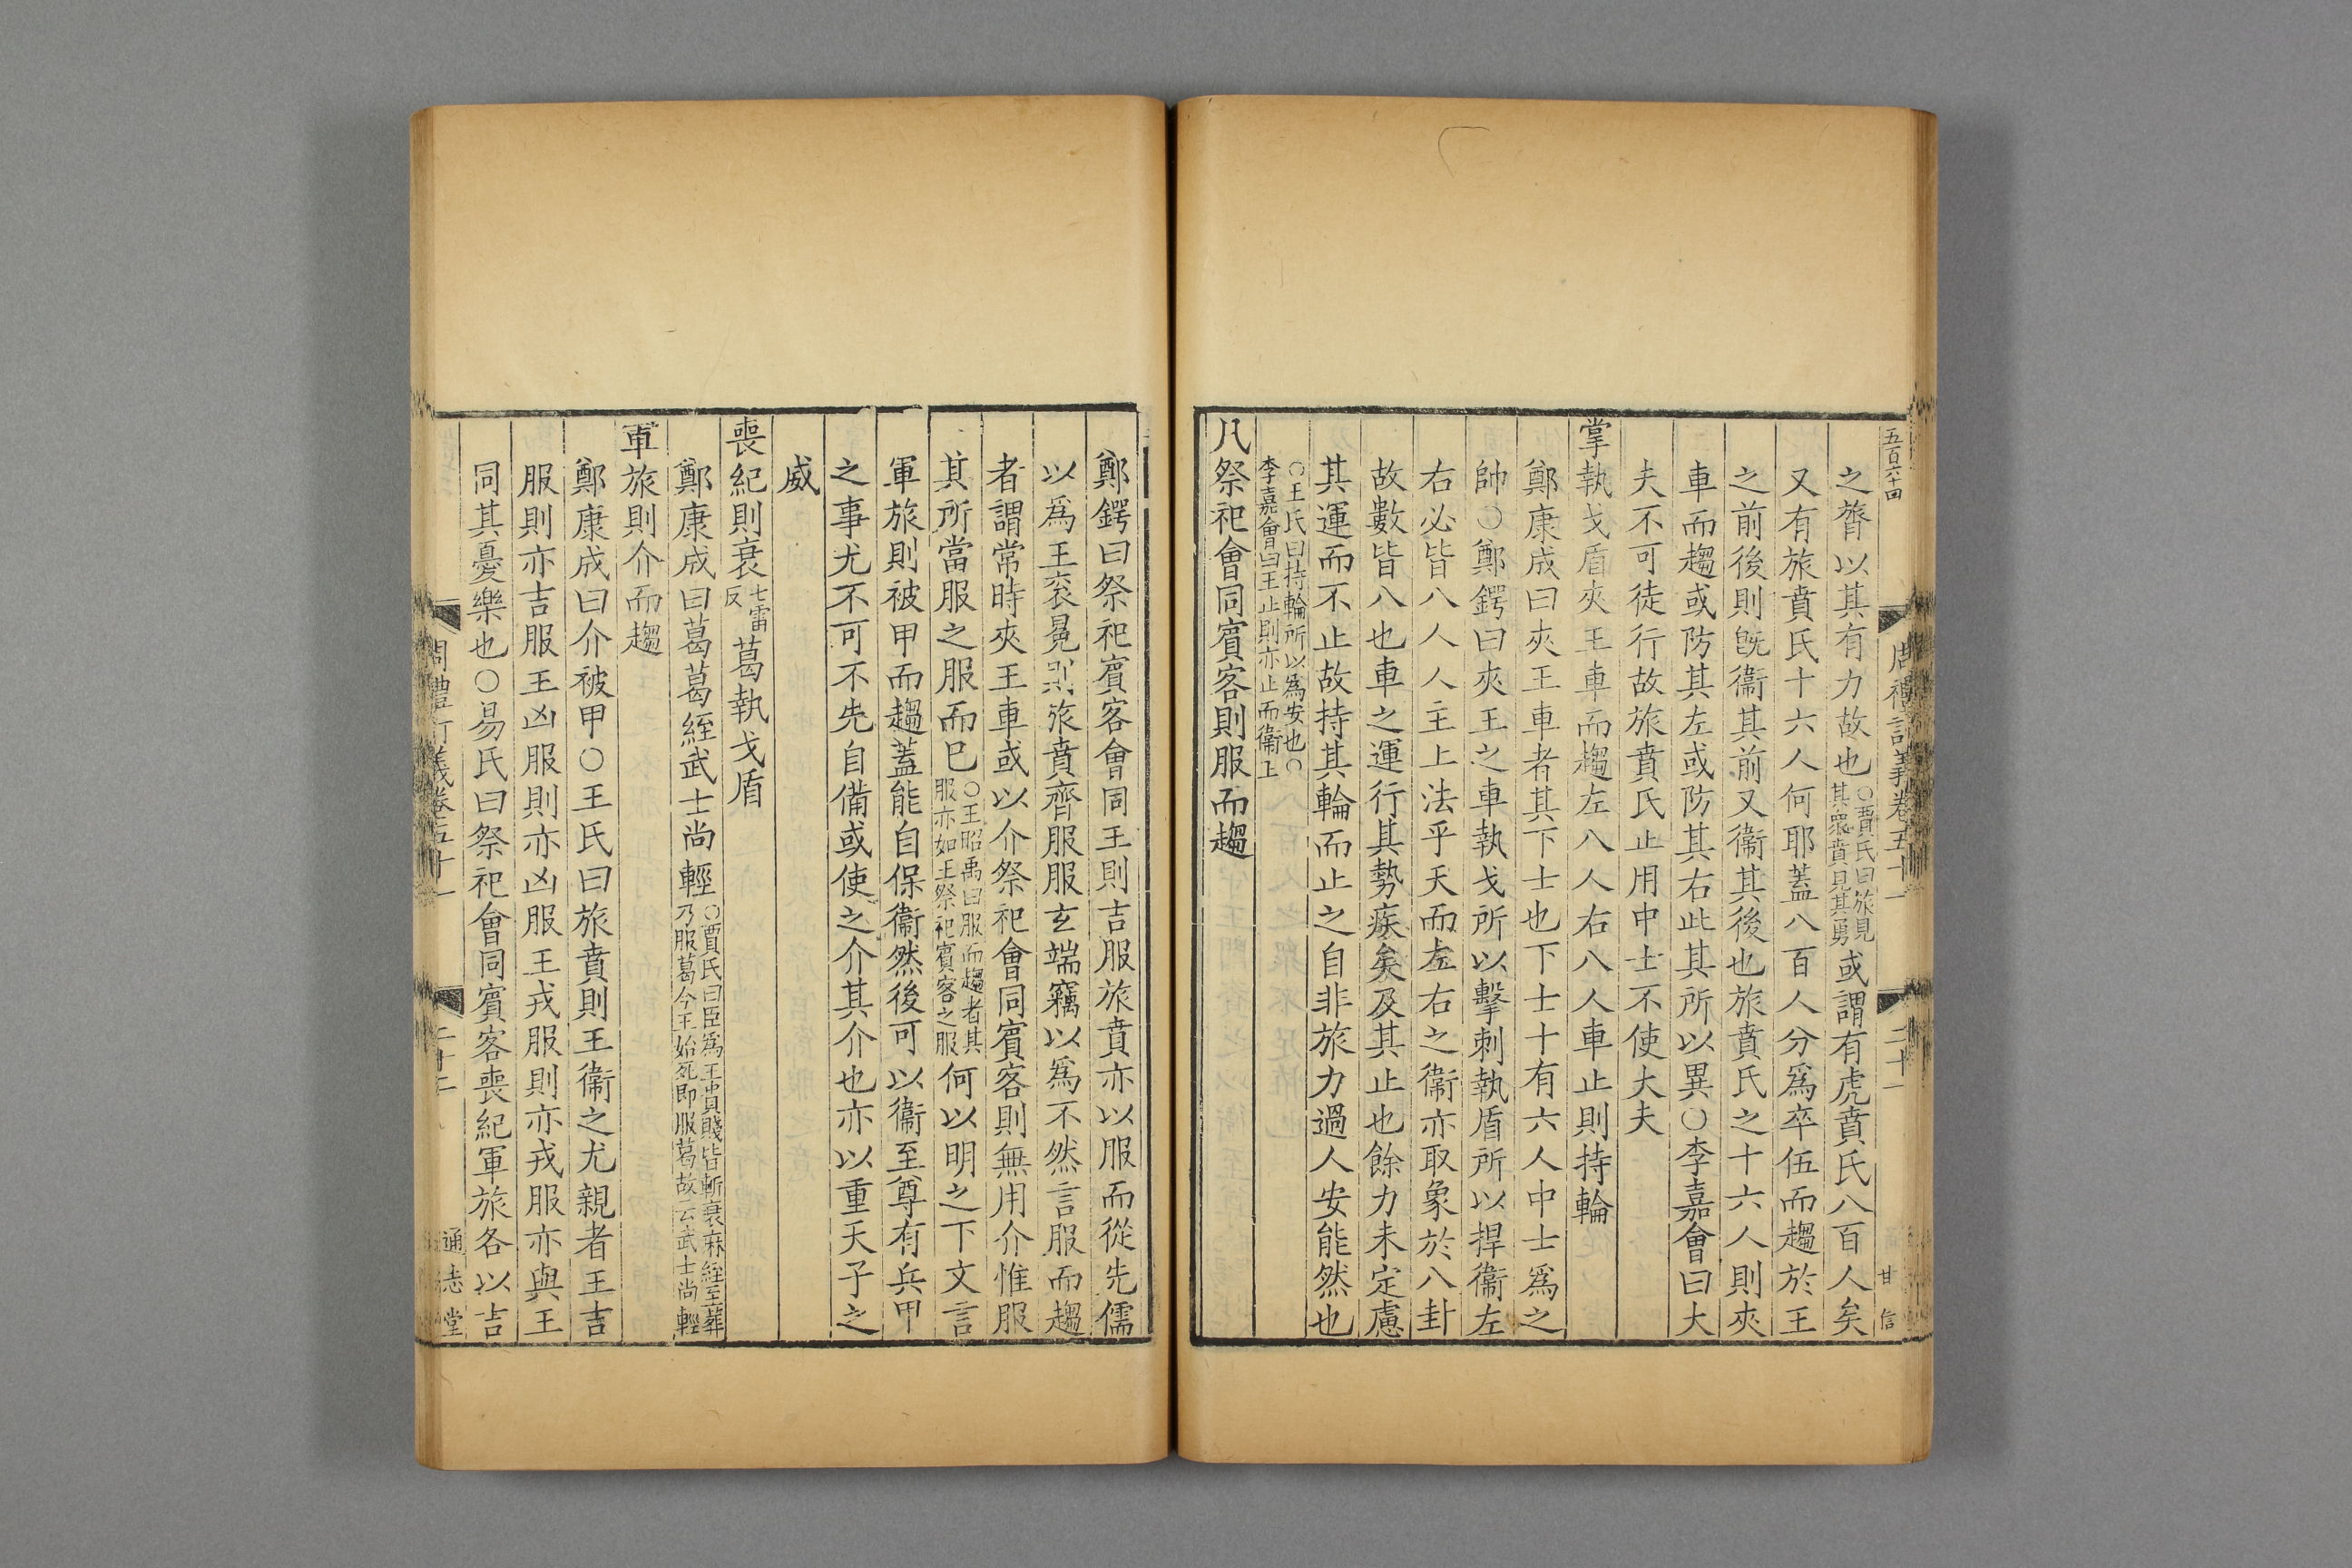 五百六十四
周禮訂義卷五十一
二十一
甘信
之膂以其有力故也○賈氏曰旅見其衆賁見其勇或謂有虎賁氏八百人矣
又有旅賁氏十六人何耶蓋八百人分爲卒伍而趨於王
之前後則旣衞其前又衞其後也旅賁氏之十六人則夾
車而趨或防其左或防其右此其所以異○李嘉會曰大
夫不可徒行故旅賁氏止用中士不使大夫
掌執戈盾夾王車而趨左八人右八人車止則持輪
鄭康成曰夾王車者其下士也下士十有六人中士爲之
帥○鄭鍔曰夾王之車執戈所以擊刺執盾所以捍衞左
右必皆八人人主上法乎天而左右之衞亦取象於八卦
故數皆八也車之運行其勢疾矣及其止也餘力未定慮
其運而不止故持其輪而止之自非旅力過人安能然也
○王氏曰持輪所以爲安也○李嘉會曰王止則亦止而衞王
凡祭祀會同賓客則服而趨
鄭鍔曰祭祀賓客會同王則吉服旅賁亦以服而從先儒
以爲王衮冕則旅賁齊服服玄端竊以爲不然言服而趨
者謂常時夾王車或以介祭祀會同賓客則無用介惟服
其所當服之服而已○王昭禹曰服而趨者其服亦如王祭祀賓客之服何以明之下文言
軍旅則被甲而趨蓋能自保衞然後可以衞至尊有兵甲
之事尤不可不先自備或使之介其介也亦以重天子之
威
喪紀則衰七雷反葛執戈盾
鄭康成曰葛葛絰武士尚輕○賈氏曰臣爲王貴賤皆斬衰麻絰至葬乃服葛今王始死卽服葛故云武士尚輕
軍旅則介而趨
鄭康成曰介被甲○王氏曰旅賁則王衞之尤親者王吉
服則亦吉服王凶服則亦凶服王戎服則亦戎服亦與王
同其憂樂也○易氏曰祭祀會同賓客喪紀軍旅各以吉
周禮訂義卷五十一
二十一
通志堂